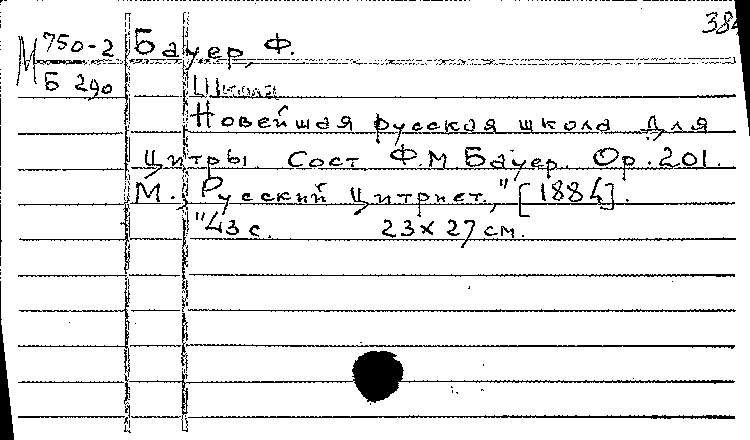 М 750-2 Бауер, Ф.
Б 290
Школа
Новейшая русская школа для
цитры. Сост. Ф.М. Бауер. Ор. 201.
М., "Русский цитрист," [1884].
43 с. 23 x 27 см.